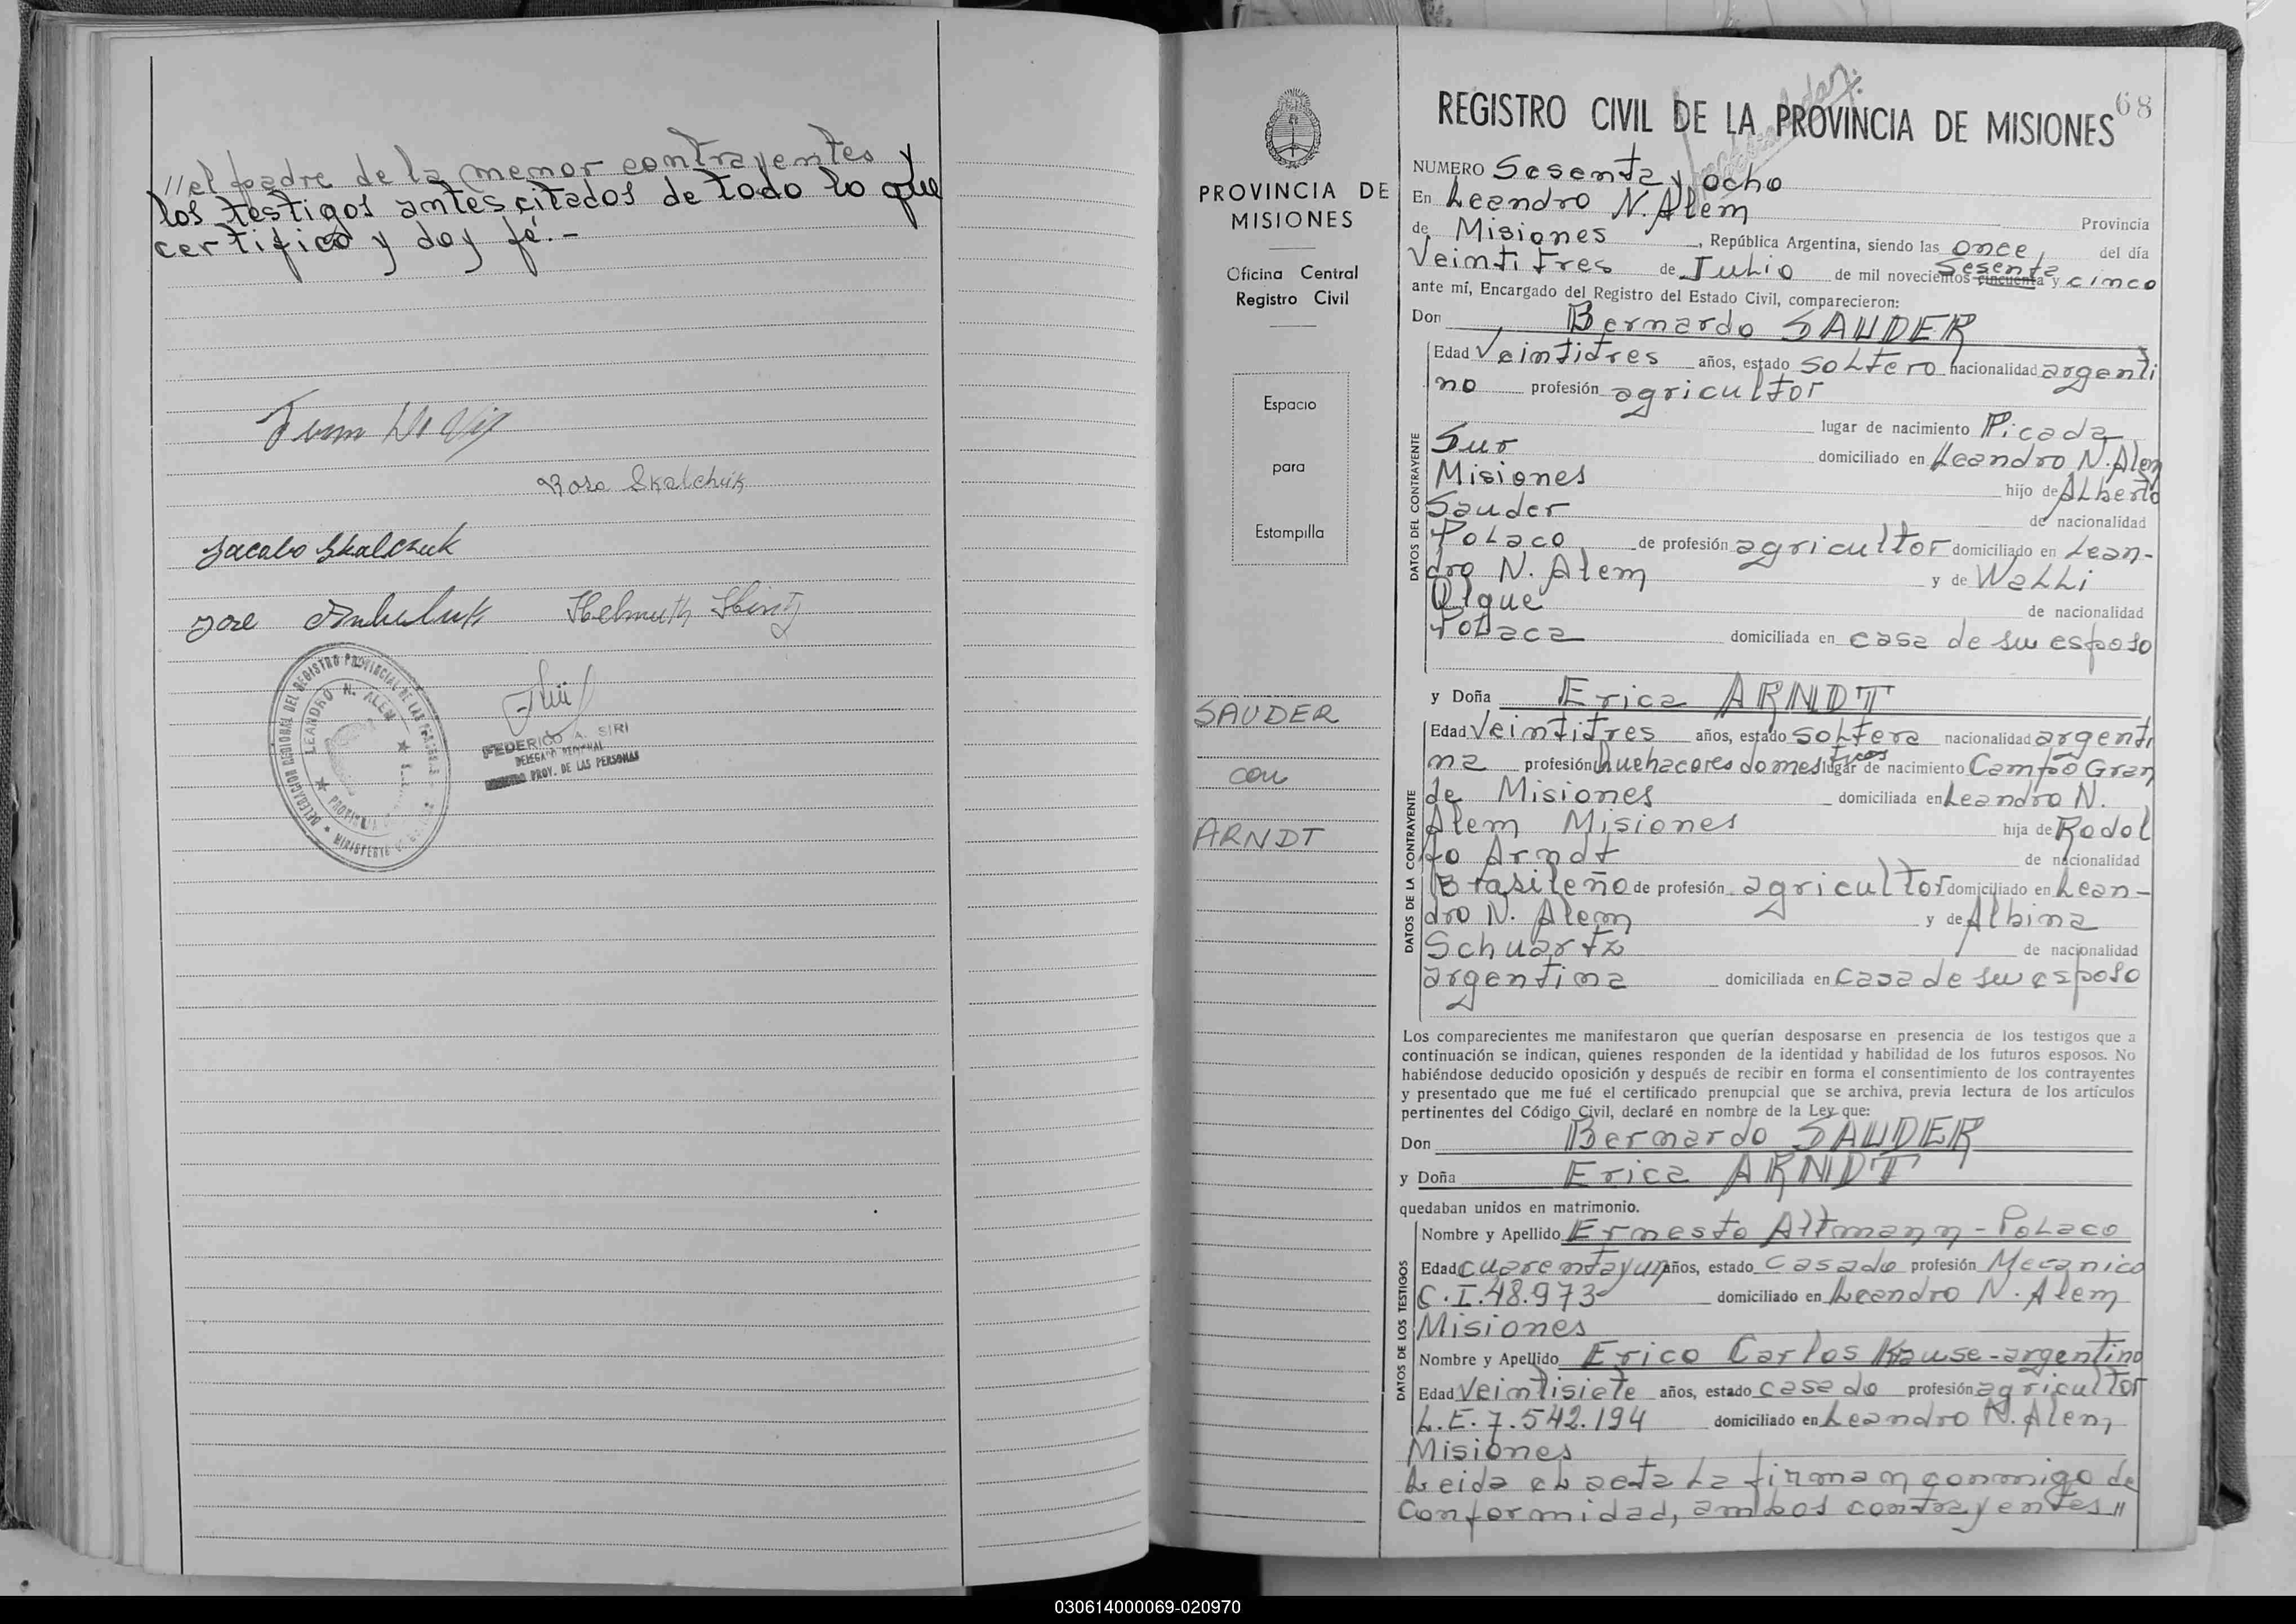 //el padre de la menor contrayentes y
los testigos antescitados de todo lo que
certifico y doy fé.-
Rosa Skalchuk
Jacabo Skalchuk
Jose
Helmuth Hintz
DELEGACION REGIONAL DEL REGISTRO PROVINCIAL DE LAS PERSONAS
LEANDRO N. ALEM
FEDERICO A. SIRI
DELEGADO REGIONAL
REGISTRO PROV. DE LAS PERSONAS
PROVINCIA DE
MISIONES
Oficina Central
Registro Civil
Espacio
para
Estampilla
SAUDER
con
ARNDT
68
REGISTRO CIVIL DE LA PROVINCIA DE MISIONES
NUMERO Sesenta y ocho
En Leandro N. Alem Provincia
de Misiones, República Argentina, siendo las once, del día
Veintitres de Julio de mil novecientos cincuenta sesenta y cinco
ante mí, Encargado del Registro del Estado Civil, comparecieron:
Don Bernardo SAUDER
DATOS DEL CONTRAYENTE
Edad Veintitres años, estado soltero nacionalidad argenti
no profesión agricultor
lugar de nacimiento Picada
Sur domiciliado en Leandro N. Alem
Misiones hijo de Alberto
Sauder de nacionalidad
Polaco de profesión agricultor domiciliado en Lean-
dro N. Alem y de Walli
Olgue de nacionalidad
Polaca domiciliada en casa de su esposo
y Doña Erica ARNDT
DATOS DE LA CONTRAYENTE
Edad Veintitres años, estado soltera nacionalidad argenti
na profesión quehaceres domesticos lugar de nacimiento Campo Gran
de Misiones domiciliada en Leandro N.
Alem Misiones hija de Rodol
fo Arndt de nacionalidad
Brasileño de profesión agricultor domiciliado en Lean-
dro N. Alem y de Albina
Schuartz de nacionalidad
argentina domiciliada en casa de su esposo
Los comparecientes me manifestaron que querían desposarse en presencia de los testigos que a
continuación se indican, quienes responden de la identidad y habilidad de los futuros esposos. No
habiéndose deducido oposición y después de recibir en forma el consentimiento de los contrayentes
y presentado que me fué el certificado prenupcial que se archiva, previa lectura de los artículos
pertinentes del Código Civil, declaré en nombre de la Ley que:
Don Bernardo SAUDER
y Doña Erica ARNDT
quedaban unidos en matrimonio.
DATOS DE LOS TESTIGOS
Nombre y Apellido Ernesto Altmann - Polaco
Edad cuarenta y un años, estado casado profesión Mecanico
C.I. 48.973 domiciliado en Leandro N. Alem
Misiones
Nombre y Apellido Erico Carlos Krause - argentino
Edad Veintisiete años, estado casado profesión agricultor
L.E. 7.542.194 domiciliado en Leandro N. Alem,
Misiones
Leida el acta la firman conmigo de
Conformidad, ambos contrayentes //
030614000069-020970